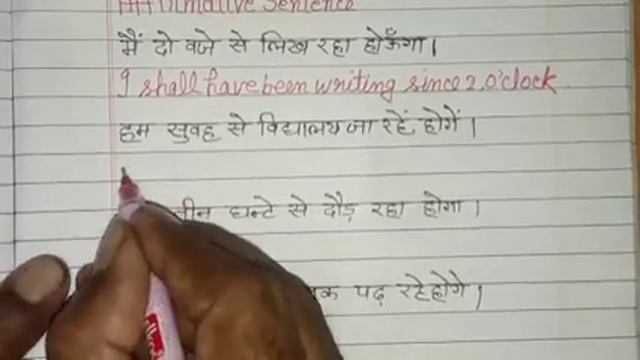 Affirmative Sentence
मैं दो वजे से लिख रहा होऊँगा।
I shall have been writing since 2 o'clock.
हम सुवह से विद्यालय जा रहें होगें।
तीन घन्टे से दौड़ रहा होगा।
पढ़ रहे होगे।